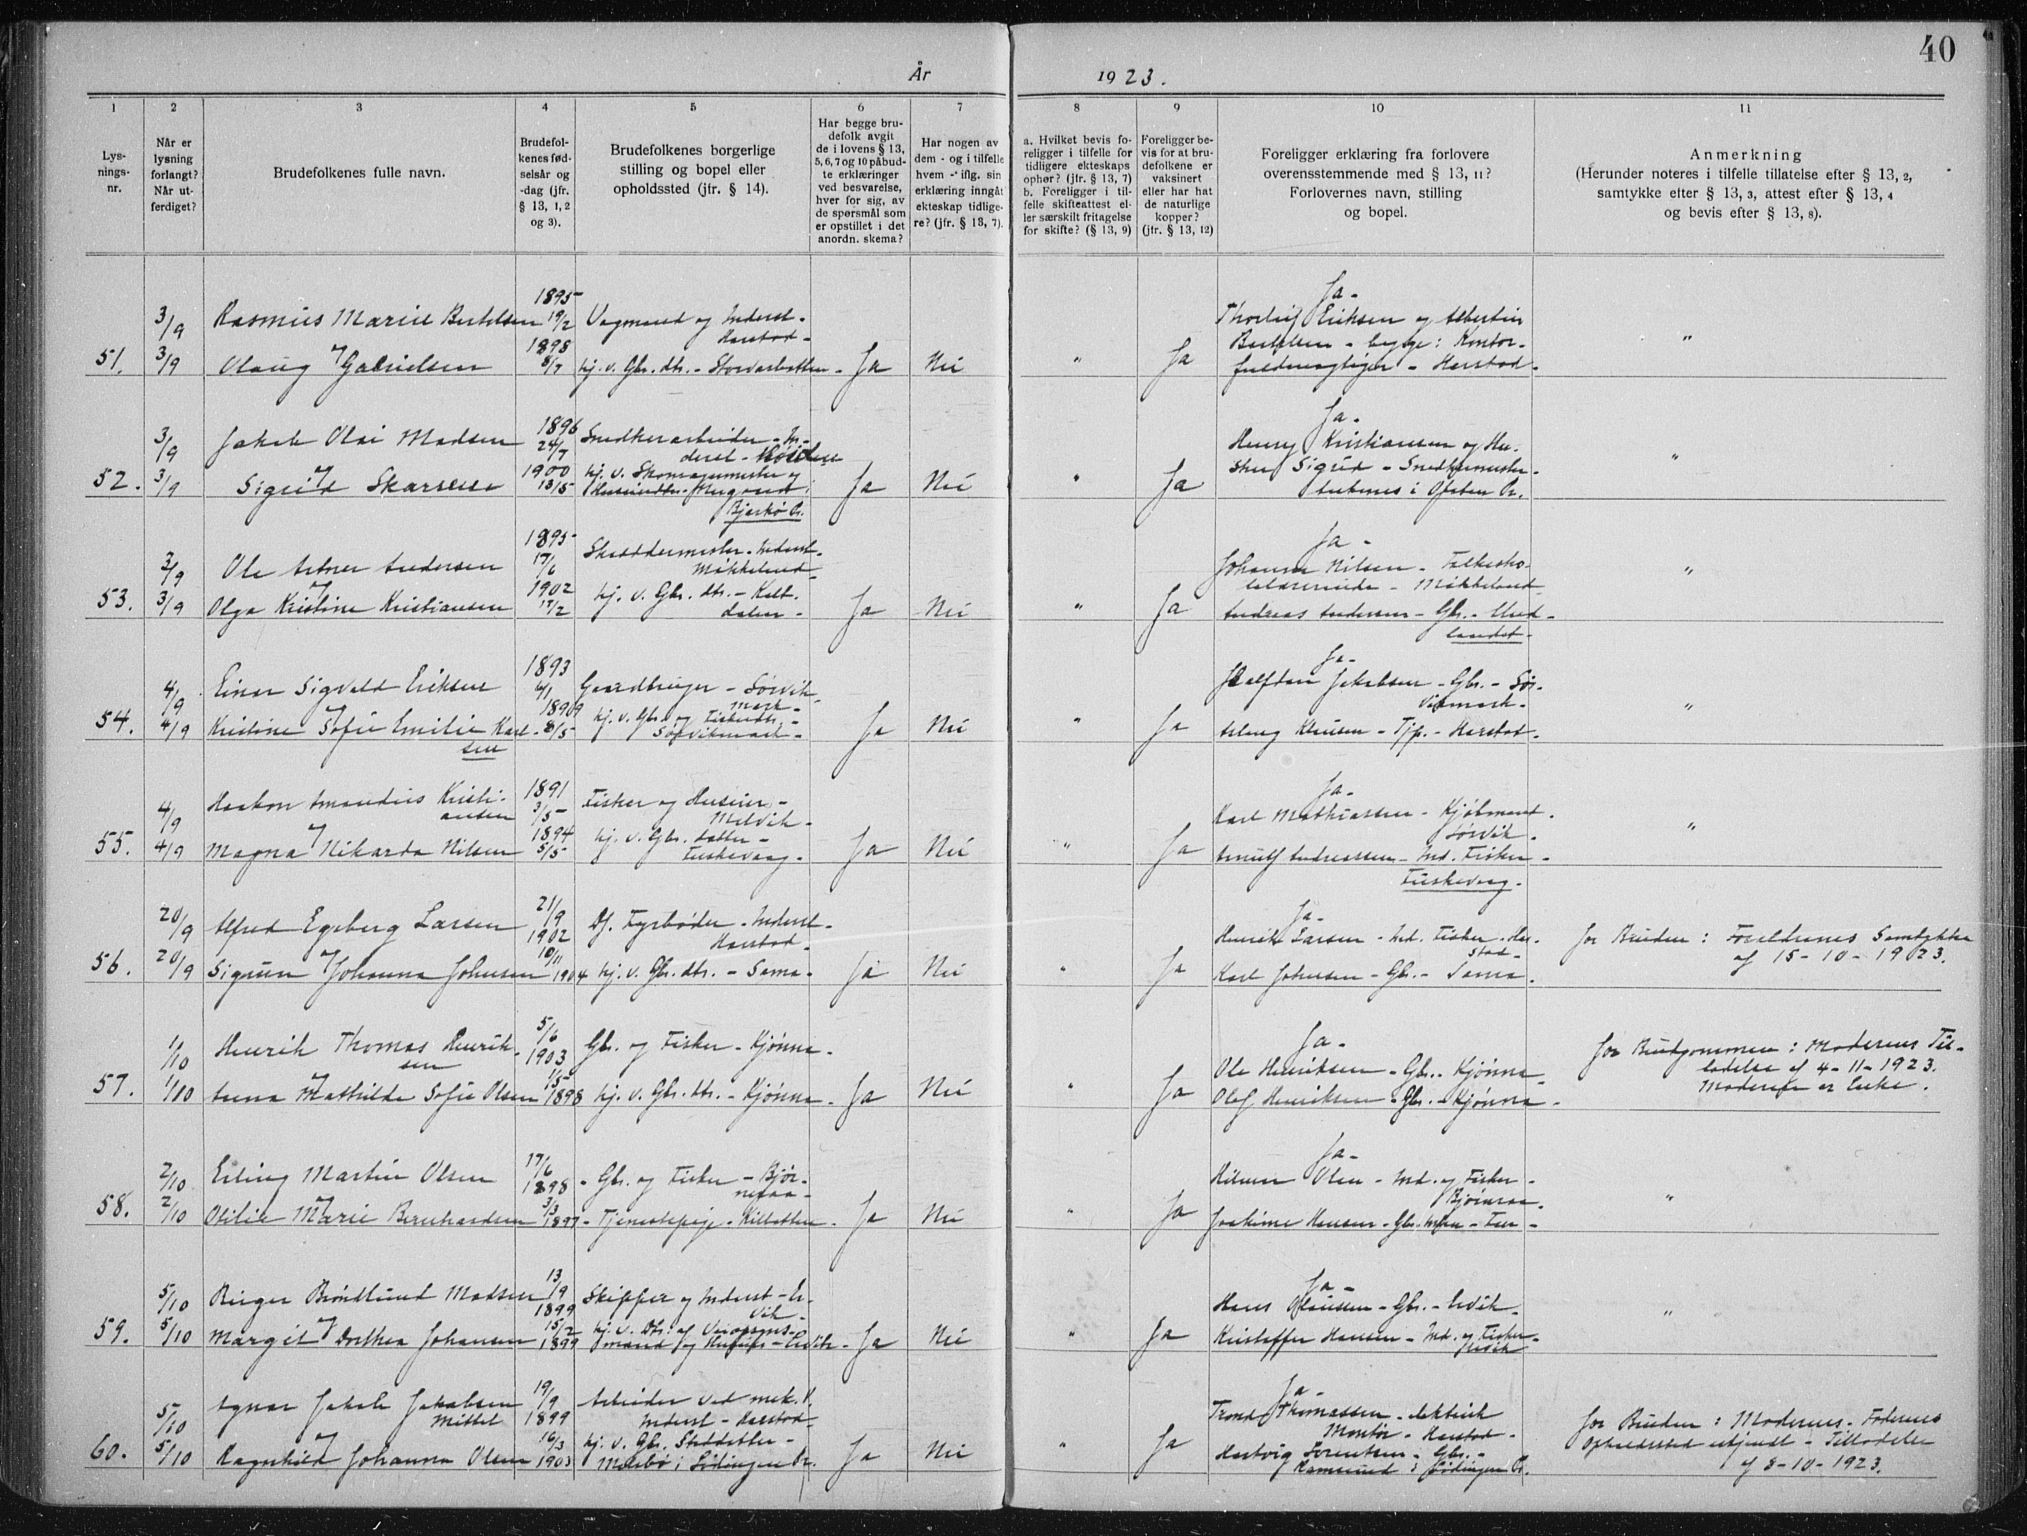 40
År 1923.
1 2 3 4 5 6 7 8 9 10 11
Lysningsnr.
Når er lysning forlangt? Når utferdiget?
Brudefolkenes fulle navn.
Brudefolkenes fødselsår og -dag (jfr. § 13, 1, 2 og 3).
Brudefolkenes borgerlige stilling og bopel eller opholdssted (jfr. § 14).
Har begge brudefolk avgit de i lovens § 13, 5, 6, 7 og 10 påbudte erklæringer ved besvarelse, hver for sig, av de spørsmål som er opstillet i det anordn. skema?
Har nogen av dem - og i tilfelle hvem - iflg. sin erklæring inngått ekteskap tidligere? (jfr. § 13, 7).
a. Hvilket bevis foreligger i tilfelle for tidligere ekteskaps ophør? (jfr. § 13, 7)
b. Foreligger i tilfelle skifteattest eller særskilt fritagelse for skifte? (§ 13, 9)
Foreligger bevis for at brudefolkene er vaksinert eller har hat de naturlige kopper? (jfr. § 13, 12)
Foreligger erklæring fra forlovere overensstemmende med § 13, 11? Forlovernes navn, stilling og bopel.
Anmerkning
(Herunder noteres i tilfelle tillatelse efter § 13, 2, samtykke efter § 13, 3, attest efter § 13, 4 og bevis efter § 13, 8).
51. 3/9 3/9
Rasmus Marius Bertelsen 1895 19/2 Vognmand og Inderst - Harstad -
Olaug Gabrielsen 1898 8/7 hj. v. Gbr. dtr. - Ja Nei " Ja
Ja - Thorleif Eriksen og Albertin Bertelsen - begge: Kontorfuldmægtiger - Harstad. "
52. 3/9 3/9
Jakob Olai Madsen 1896 24/7 Snedkerarbeider - Inderst -
Sigrid Skarsem 1900 13/5 hj. v. Skomagermester og Bjarkø Pr. Ja Nei " Ja
Ja - Henry Kristiansen og Hustru Sigrid - Snedkermester - i Ofoten Pr. "
53. 3/9 3/9
Ole Arner Andersen 1895 17/6 Skræddermester - Inderst. Møkkeland
Olga Kristine Kristiansen 1902 17/2 hj. v. Gbr. dtr. - Ja Nei " Ja
Ja - Johanna Nilsen - Møkkeland Andreas Andersen - Gbr. - "
54. 4/9 4/9
Einar Sigvald Eriksen 1893 4/1 Gaardbruger - Sørvikmark -
Kristine Sofie Emilie Karlsen 8/5 hj. v. Gbr. og Fiskerdtr. - Sørvikmark - Ja Nei " Ja
Ja - Halfdan Jakobsen - Gbr. - Sørvikmark - Aslaug Klausen - Tjp. - Harstad. "
55. 4/9 4/9
Haakon Amandus Kristiansen 1891 3/5 Fisker og Huseier - Melvik -
Magna Nikarda Nilsen 1894 5/5 hj. v. Gbr. datter - Fuskevaag - Ja Nei " Ja
Ja - Karl Mathiassen - Kjøbmand. Sørvik. Arnulf Andreassen - Ind. Fisker - Fuskevaag - "
56. 20/9 20/9
Alfred Egeberg Larsen 21/9 1902 Df. Fyrbøder - Inderst - Harstad -
Sigrun Johanna Johnsen 10/11 1904 hj. v. Gbr. dtr. - Sama - Ja Nei " Ja
Ja - Henrik Larsen - Ind. Fisker. Harstad - Karl Johnsen - Gbr. - Sama.
for Bruden: Foreldrenes Samtykke af 15-10-1923.
57. 1/10 1/10
Henrik Thomas Henriksen 5/6 1903 Gbr. og Fisker - Kjønna -
Anna Mathilde Sofie Olsen 1/5 1898 hj. v. Gbr. dtr. - Kjønna - Ja Nei " Ja
Ja - Ole Henriksen - Gbr. - Kjønna - Olaf Henriksen - Gbr. - Kjønna -
for Brudgommen: Moderens Tilladelse af 4-11-1923. Moderen er Enke.
58. 2/10 2/10
Erling Martin Olsen 17/6 1898 - Gbr. og Fisker -
Otilie Marie Bernhardsen 3/3 1897 - Tjenestepige - Ja Nei " Ja
Ja - Hilmar Olsen - Ind. og Fisker - Joakime Hansen - "
59. 5/10 5/10
Birger Brøndlund Madsen 13/9 1899 Skipper og Inderst - Ervik -
Margit Dorthea Johansen 15/2 1899 hj. v. Dtr: af - Ervik - Ja Nei " Ja
Ja - Hans Olaussen - Gbr. - Ervik - Kristoffer Hansen - Ind. og Fisker - Ervik "
60. 5/10 5/10
Agnar Jakob Jakobsen Mittet 19/9 1899 Arbeider ved mek. V. Inderst - Harstad -
Ragnhild Johanna Olsen 16/3 1903 hj. v. Gbr. Steddatter - i Lødingen Pr. Ja Nei " Ja
Ja - Trond Thomassen - elektrisk Montør - Harstad - Hartvig Lorentsen - Gbr. - Ramsund i Lødingen Pr.
for Bruden: Moderens - Faderens Opholdssted ukjendt - Tilladelse af 8-10-1923.